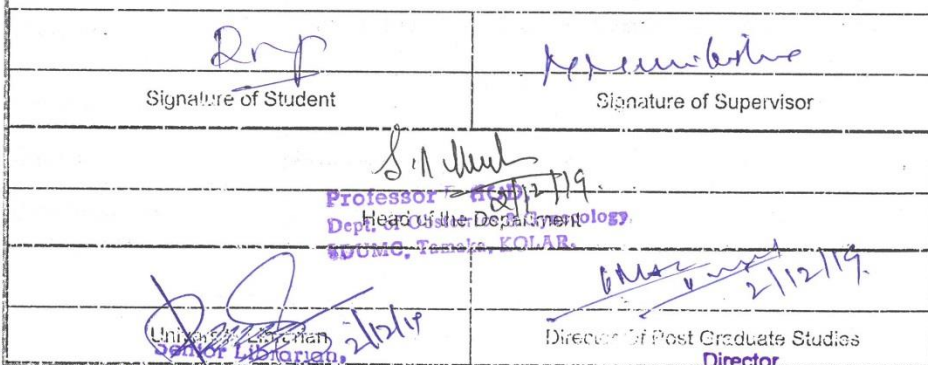 Signature of Student
Signature of Supervisor
2/12/19.
Professor & HOD
Head of the Department
Dept. of Obstetrics & Gynecology
SDUMC, Tamaka, KOLAR.
2/12/19.
2/12/19
University Librarian
Senior Librarian,
Director of Post Graduate Studies
Director